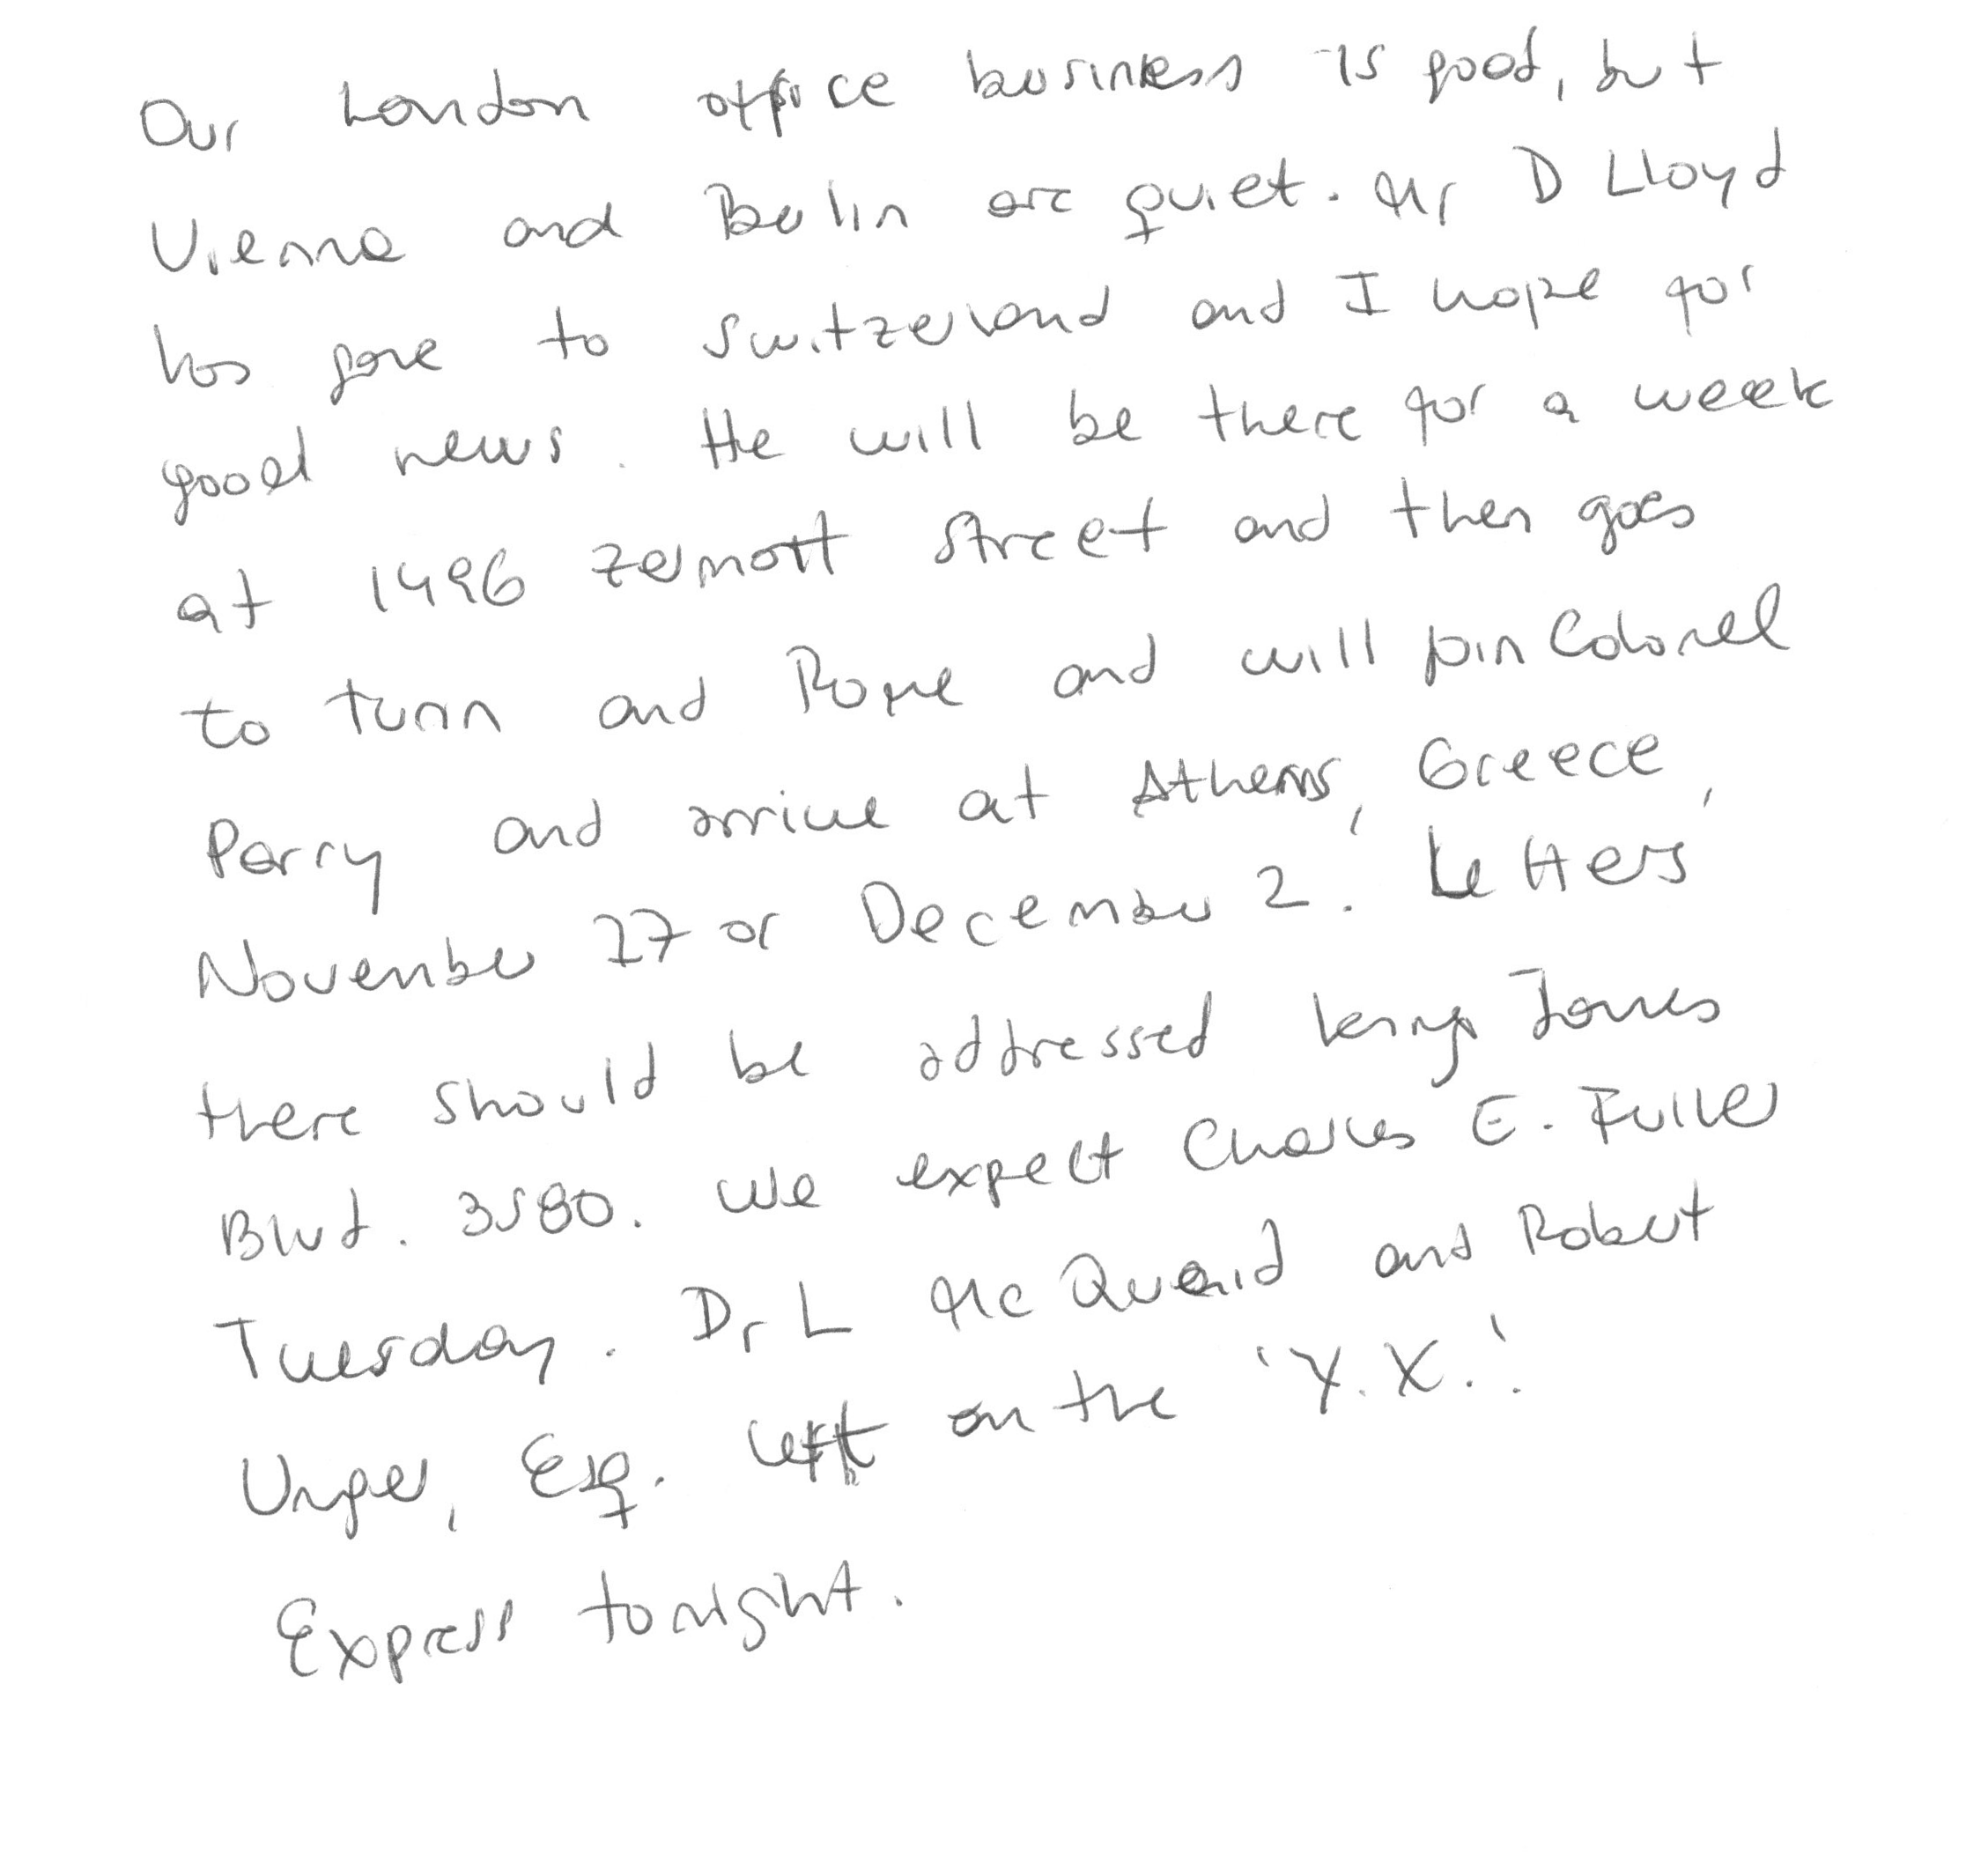 Our London office business is good, but
Vienna and Berlin are quiet. Mr D Lloyd
has gone to Switzerland and I hope for
good news. He will be there for a week
at 1496 Zermott Street and then goes
to Turin and Rome and will join Colonel
Perry and arrive at Athens, Greece,
November 27 or December 2. Letters
there should be addressed King James
Blvd. 3580. We expect Charles E. Fuller
Tuesday. Dr L McQuaid and Robert
Unger, Esq. left on the 'Y.X.'.
Express tonight.